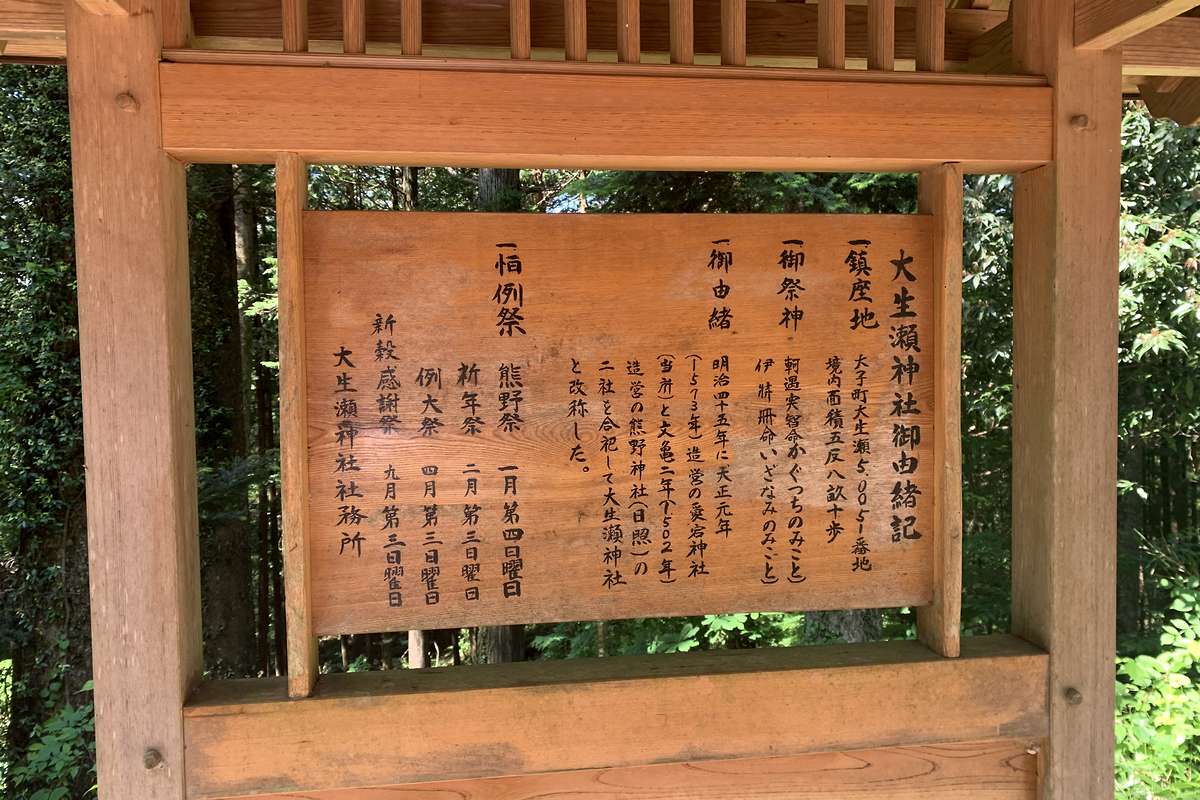 大生瀬神社御由緒記
一鎮座地 大子町大生瀬5,005-1番地
境内面積五反八畝十歩
一御祭神 軻遇突智命かぐつちのみこと)
伊弉冊命いざなみのみこと)
一御由緒 明治四十五年に天正元年
(1573年)造営の愛宕神社
(当所)と文亀二年(1502年)
造営の熊野神社(日照)の
二社を合祀して大生瀬神社
と改称した。
一恒例祭 熊野祭 一月第四日曜日
祈年祭 二月第三日曜日
例大祭 四月第三日曜日
新穀感謝祭 九月第三日曜日
大生瀬神社社務所